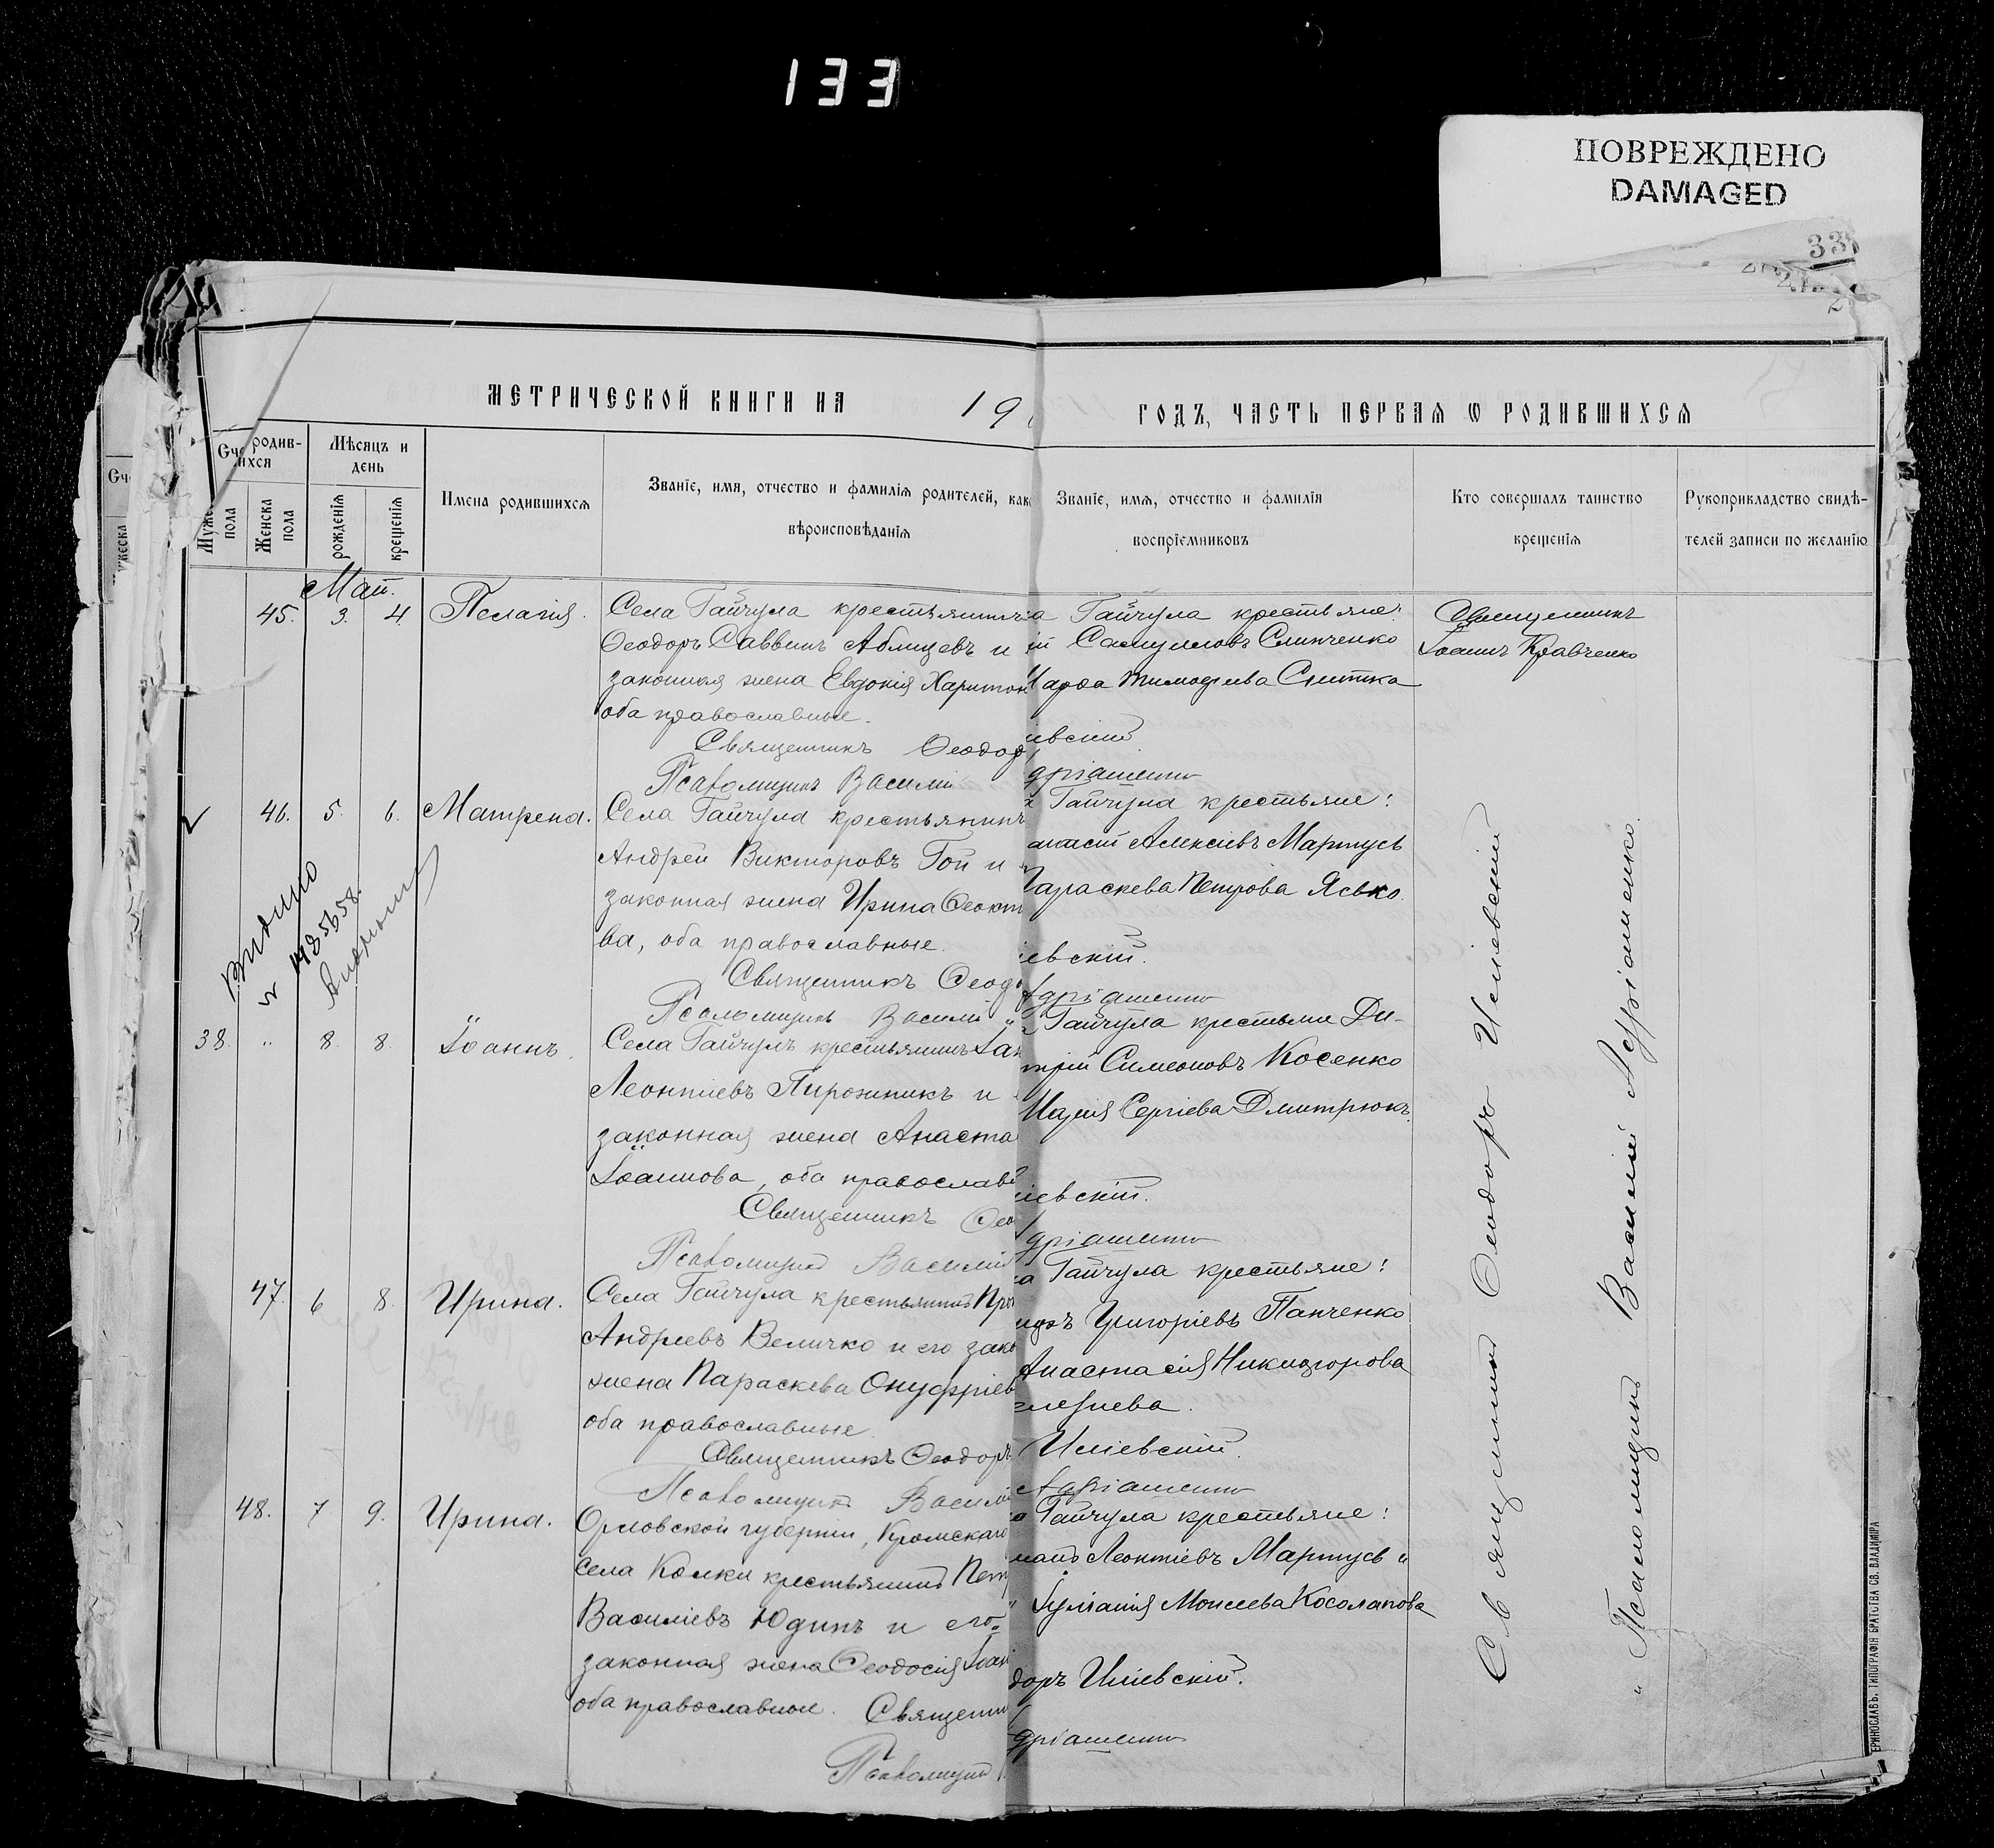 133
ПОВРЕЖДЕНО
DAMAGED
33
МЕТРИЧЕСКОЙ КНИГИ НА 19
ГОДЪ, ЧАСТЬ ПЕРВАЯ Ѡ РОДИВШИХСЯ
Сче родив-
ихся
Муже
пола
Женска
пола
Мѣсяцъ и
день
рожденія
крещенія
Имена родившихся
Званіе, имя, отчество и фамилія родителей, как
вѣроисповѣданія
Званіе, имя, отчество и фамилія
воспріемниковъ
Кто совершалъ таинство
крещенія
Рукоприкладство свидѣ-
телей записи по желанію
Май.
45. 3. 4. Пелагія.
Села Гайчула крестьянинъ
Ѳеодоръ Саввинъ Аблицевъ и
законная жена Евдокія Харитон
оба православные.
Священникъ Ѳеодор
Псаломщикъ Василій
а Гайчула крестьяне:
ій Самуиловъ Слипченко
Марѳа Тимофеева Снитка
іевскій
дріашенко
Священникъ
Іоаннъ Кравченко
46. 5. 6. Матрена.
Села Гайчула крестьянинъ
Андрей Викторовъ Гой и
законная жена Ирина Ѳеокт
ва, оба православные.
Священникъ Ѳеод
Псаломщикъ Василій
а Гайчула крестьяне:
анасій Алексіевъ Мартусь
Параскева Петрова Ясько.
іевскій.
Адріашенко
Видано
38. " 8. 8. Іоаннъ.
Села Гайчулъ крестьянинъ Іак
Леонтіевъ Пирожникъ и
законная жена Анаста
Іоаннова, оба православ
Священникъ Ѳео
Псаломщикъ Василій
а Гайчула крестьяне Ди-
трій Симеоновъ Косенко
Марія Сергіева Дмитрюкъ.
іевскій.
дріашенко
47. 6 8. Ирина.
Села Гайчула крестьянинъ Про
Андреевъ Величко и его зако
жена Параскева Онуфріев
оба православные
Священникъ Ѳеодоръ
Псаломщикъ Василій
а Гайчула крестьяне:
Григоріевъ Панченко
Анастасія Никифорова
Иліевскій.
Адріашенко
48. 7 9. Ирина.
Орловской губерніи, Кромскаго
села Колки крестьянинъ Пет
Василіевъ Юдинъ и его
законная жена Ѳеодосія Іоан
оба православные. Священни
Псаломщикъ
а Гайчула крестьяне:
Леонтіевъ Мартусь и
Іуліанія Моисеева Косолапова
доръ Иліевскій.
дріашенко
Священникъ Ѳеодоръ Иліевскій
" Псаломщикъ Василій Адріашенко.
ЕРИНОСЛАВЪ, ТИПОГРАФІЯ БРАТСТВА СВ. ВЛАДИМІРА